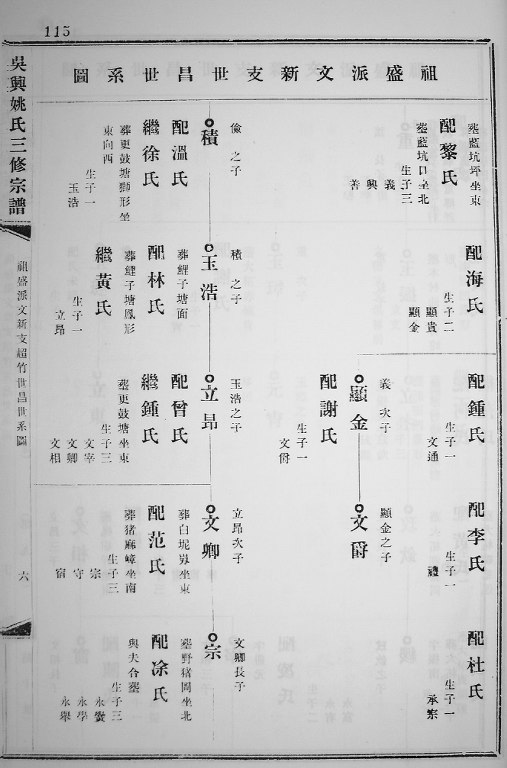 115
祖盛派文新支世昌世系圖
吳興姚氏三修宗譜
祖盛派文新支超竹世昌世系圖
六
塟藍坑坪坐東
配黎氏
塟藍坑口坐北
生子三
義
興
善
儉之子
積
配溫氏
繼徐氏
葬更鼓塘獅形坐
東向西
生子一
玉浩
配海氏
生子二
顯貴
顯金
積之子
玉浩
葬鯉子塘面
配林氏
葬鯉子塘鳳形
繼黃氏
生子一
立昂
配鍾氏
生子一
文通
義次子
顯金
配謝氏
生子一
文爵
玉浩之子
立昂
配曾氏
繼鍾氏
塟更鼓塘坐東
生子三
文宰
文卿
文相
配李氏
生子一
禮
顯金之子
文爵
立昂次子
文卿
葬白坭坐東
配范氏
葬猪麻嶂坐南
生子三
宗
守
宿
配杜氏
生子一
承宗
文卿長子
宗
塟野猪岡坐北
配凃氏
與夫合塟
生子三
永
永學
永舉